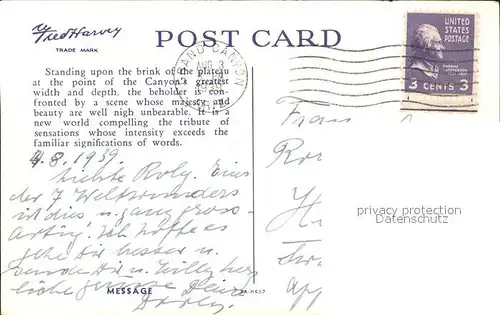 Fred Harvey
TRADE MARK
POST CARD
GRAND CANYON
AUG 3
UNITED
STATES
POSTAGE
3 CENTS 3
Standing upon the brink of the plateau
at the point of the Canyon's greatest
width and depth, the beholder is con-
fronted by a scene whose majesty and
beauty are well nigh unbearable. It is a
new world compelling the tribute of
sensations whose intensity exceeds the
familiar significations of words.
4.8.1939.
Liebste Roly. Eines
der 7 Weltwunders
ist dies u. ganz gross-
artig. Ich hoffe es
gehe Dir besser u.
sende Dir u. Willy herz
liche Deine
MESSAGE
Frau
privacy protection
Datenschutz